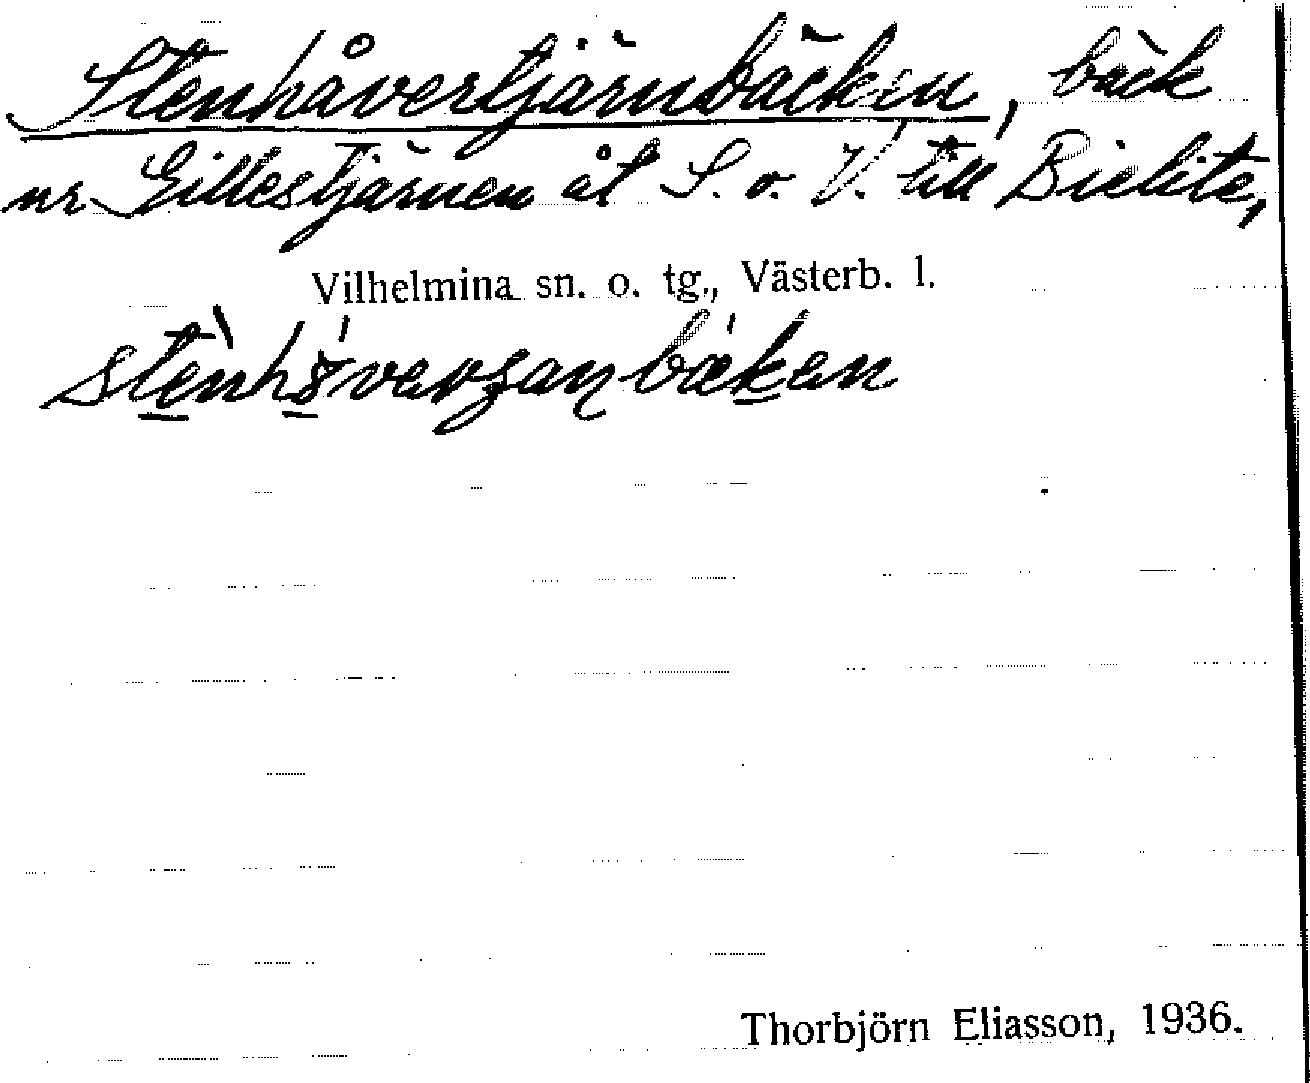 Stenhåvertjärnbäcken, bäck
nr Gillestjärnen åt S. o. V. till Bielite,
Vilhelmina sn. o. tg., Västerb. l.
Thorbjörn Eliasson, 1936.